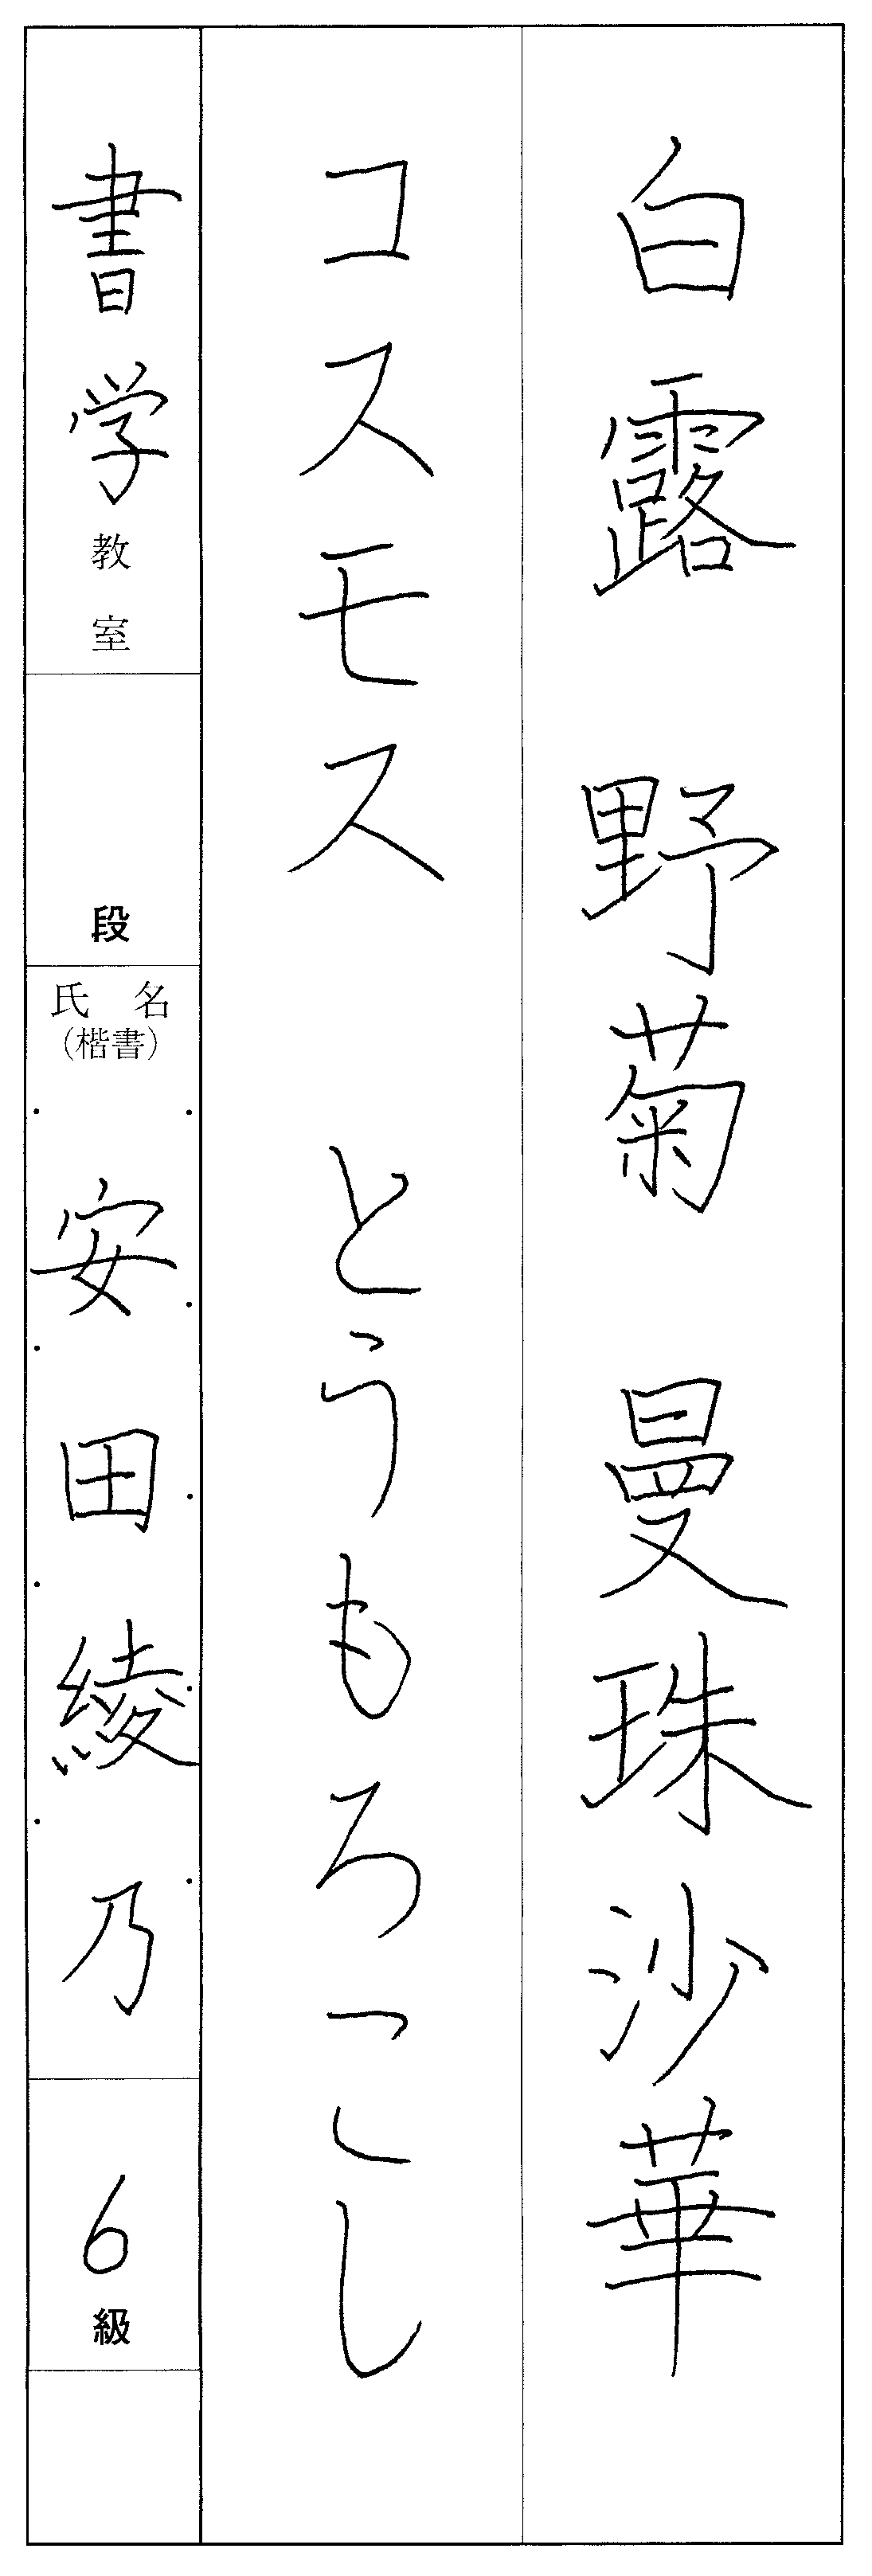 白露　野菊　曼珠沙華
コスモス　とうもろこし
書学教室
段
氏名
（楷書）
安田綾乃
6級